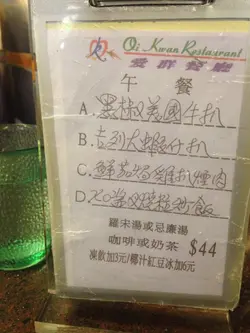 Qi Kwan Restaurant
愛群餐廳
午餐
A. 黑椒美國牛扒
B. 吉列大蝦仔扒
C. 鮮茄焗雞扒腸肉
D. 炒飯
羅宋湯或忌廉湯
咖啡或奶茶 $44
凍飲加3元/椰汁紅豆冰加6元